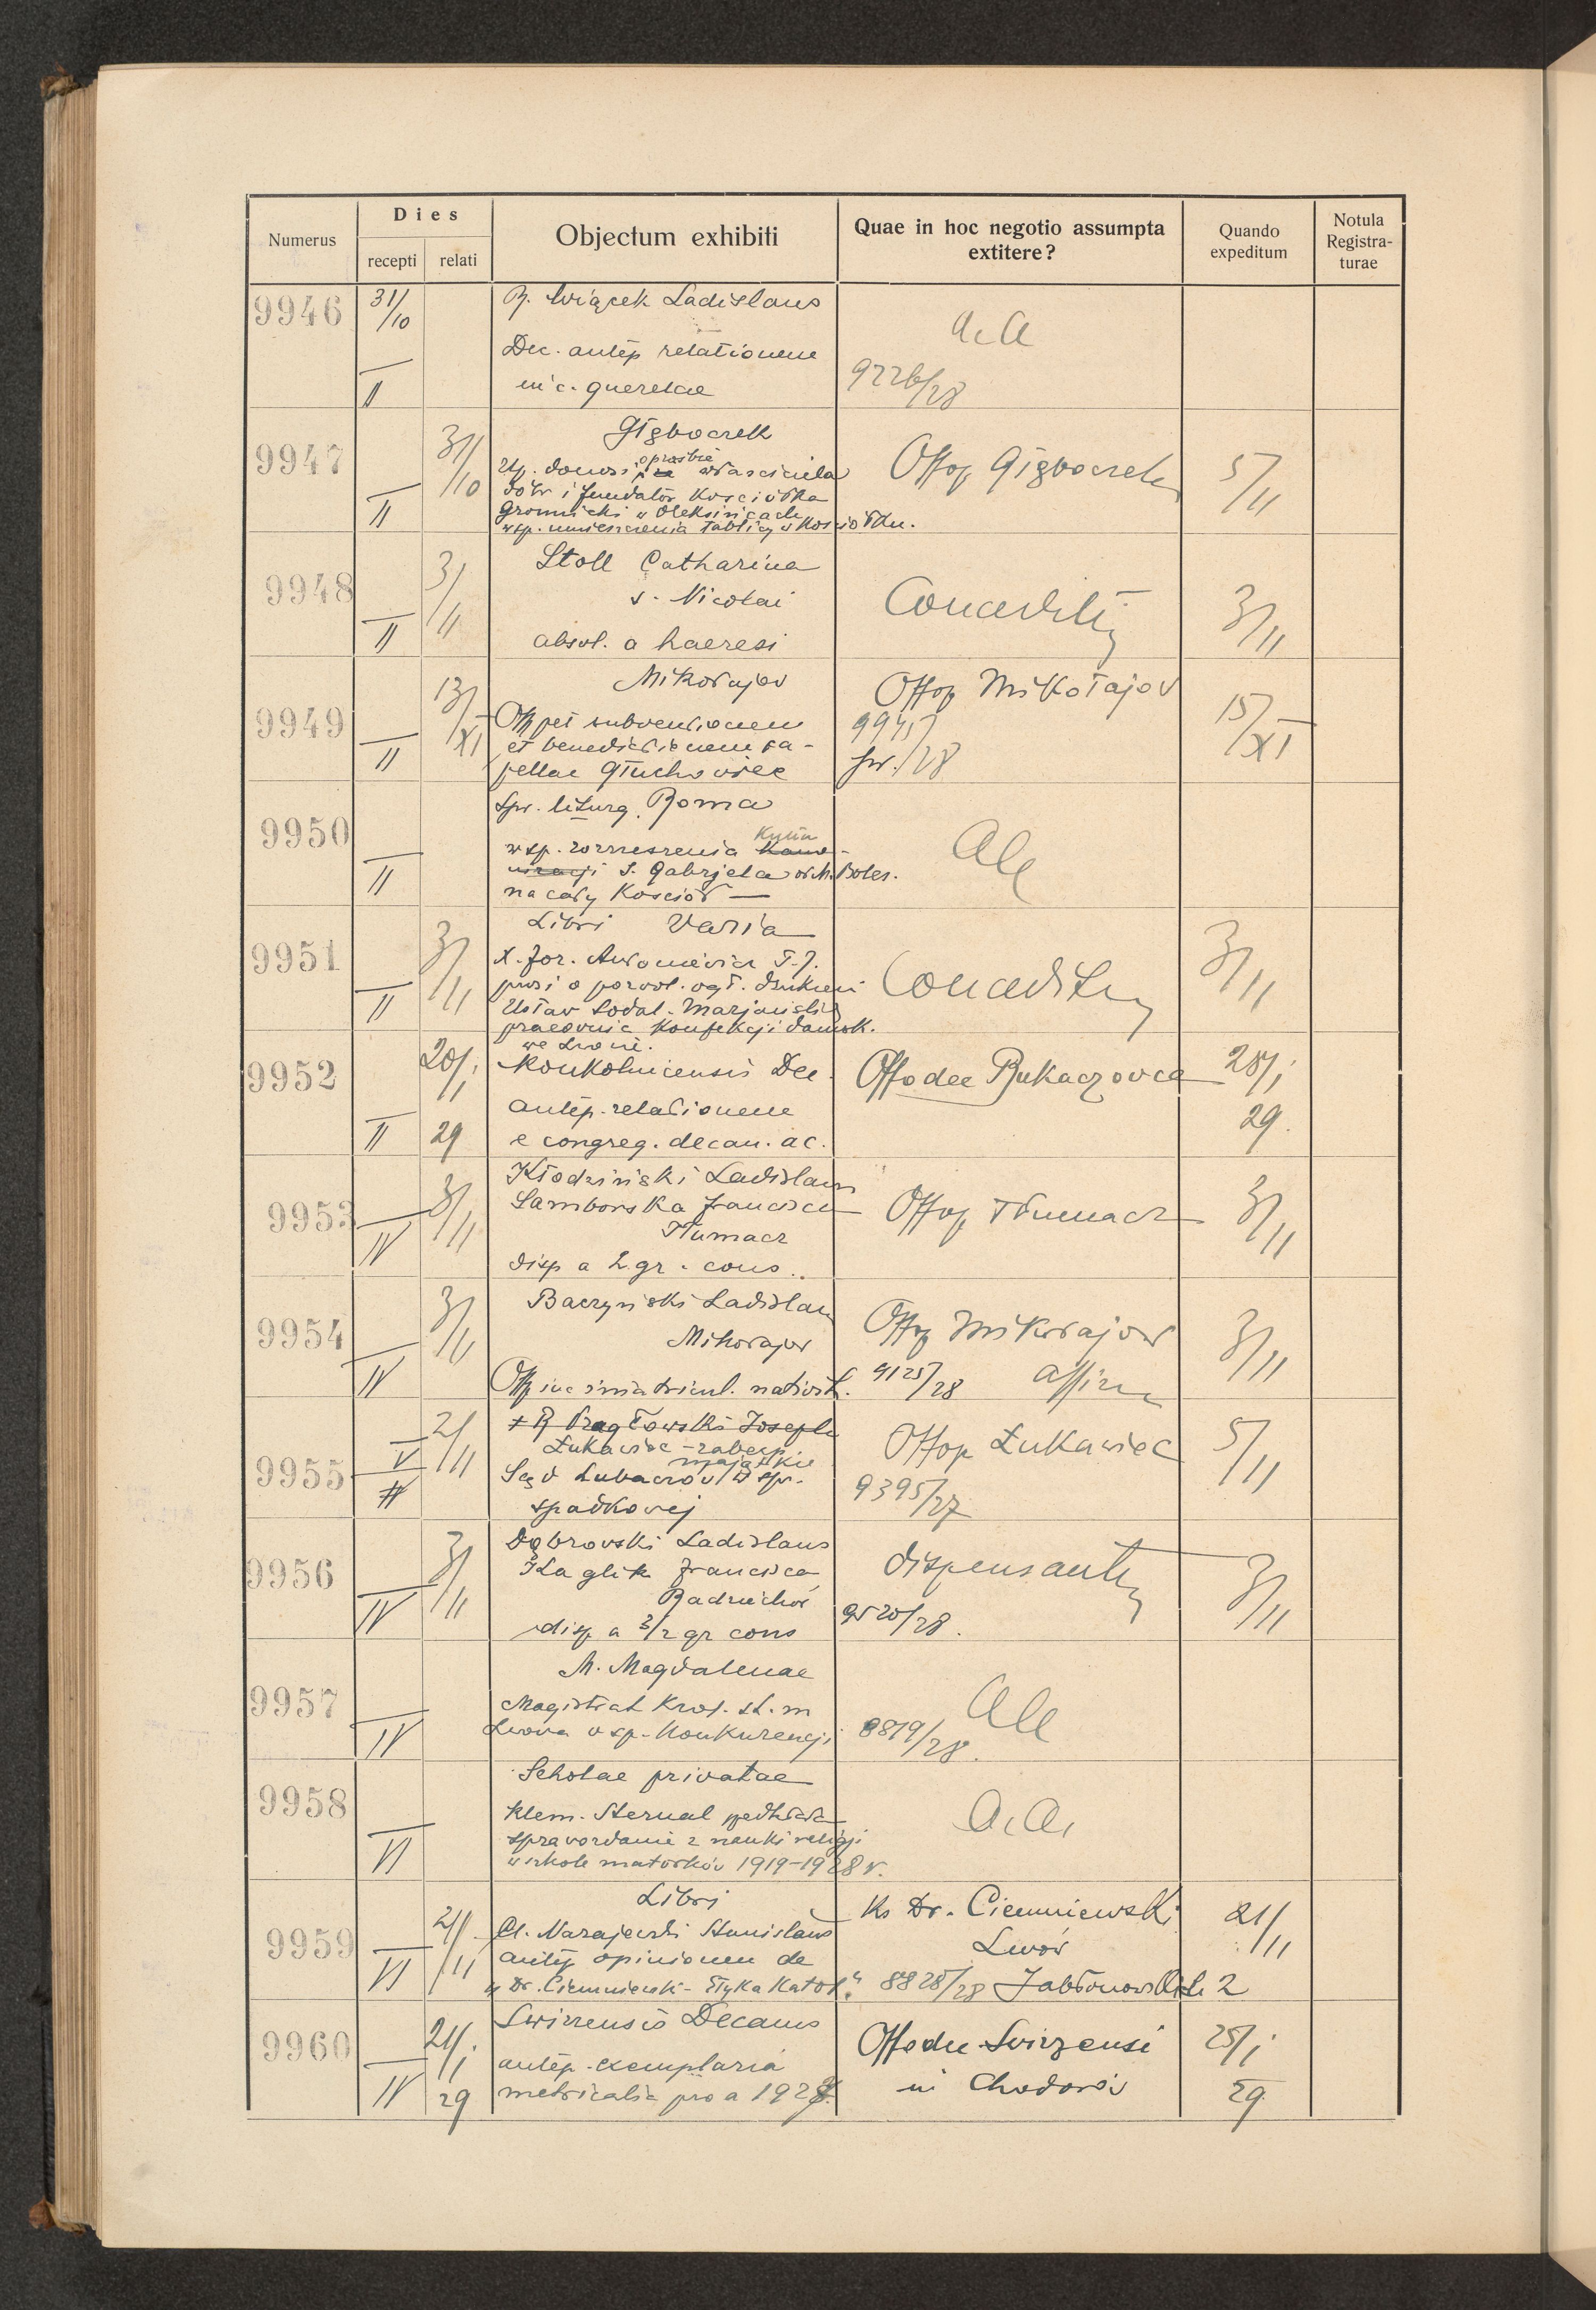 Numerus
Dies
recepti relati
Objectum exhibiti
Quae in hoc negotio assumpta
extitere?
Quando
expeditum
Notula
Registra-
turae
9946
31/10
II
R. Wiącek Ladislaus
Dec. antep relationem
in c. querelae
a. a
9226/28
9947
II
31/10
Głęboczek
Up. donosi o prośbie właściciela
dóbr i fundatōr Kościółka
Gromnicki w Oleksińcach
wsp. umieszczenia tablicy w Kościółku.
Offop Głęboczek
5/11
9948
II
3/11
Stoll Catharina
s. Nicolai
absol. a haeresi
Conceditur
3/11
9949
II
13/XI
Mikołajov
Offp pet subventionem
et benedictionem ca-
pellae Głuchowiec
Offop Mikołajov
9945/28
15/XI
9950
II
Spr. liturg. Roma
wsp. rozszerzenia Kultu
S. Gabrjela od M. Boles.
na cały Kościół —
aa
9951
II
3/11
Libri Varia
X. Joz. Antoniewicz T. J.
prosi o pozwol. ogł. drukiem
Ustaw Sodal. Marjańskiej
pracownic Konfekcji damsk.
we Lwowie.
Conceditur
3/11
9952
II
20/1
29
Konkolnicensis Dec.
antep. relationem
e congreg. decan. ac.
Offo dec Bukaczovce
28/1
29.
9953
IV
3/11
Kłodziński Ladislaus
Samborska Francisca
Tłumacz
disp a 2 gr. cons.
Offop Tłumacz
3/11
9954
IV
3/11
Baczyński Ladislaus
Mikołajov
Offp in c immatricul. nativit.
Offop Mikołajow
9125/28
3/11
9955
V
II
2/11
+ R Prągłowski Joseph
Łukawiec - zabezp.
majątkie
Sąd Lubaczów w spr.
spadkovej
Offop Łukawiec
9395/27
5/11
9956
IV
3/11
Dąbrovski Ladislaus
Kaglik Francisca
Radziechów
disp a 3/2 gr cons
dispensantur
9520/28.
3/11
9957
IV
M. Magdalenae
Magistrat Król. st. m
Lwowa w sp. Konkurencji
8819/28.
aa
9958
VI
Scholae privatae
Klem. Sternal przedkłada
sprawozdanie z nauki religji
w szkole matołków 1919-1928 r.
a. a.
9959
VI
21/11
Libri
Cl. Narajewski Stanislaus
antep opinionem de
„Dr. Ciemniewski - Etyka Katol."
Ks Dr. Ciemniewski
Lwów
8828/28 Jabłonowskich 2
21/11
9960
IV
21/1
29
Swirzensis Decanus
antep. exemplaria
metricalia pro a 1927.
Offo dec Swirzensi
in Chodorów
25/1
29.